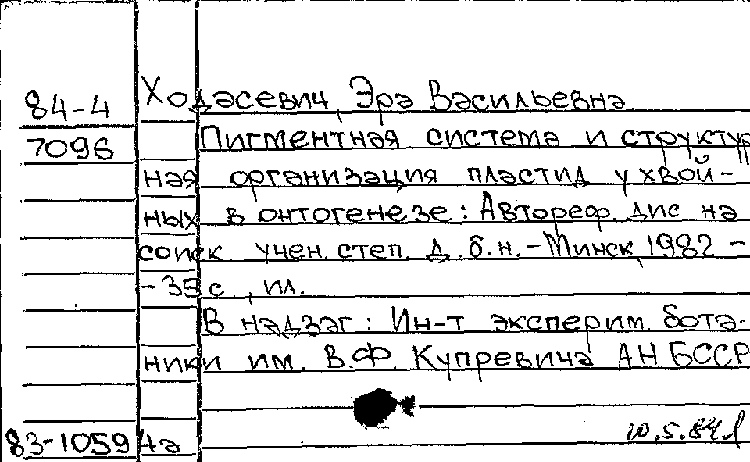 84-4 Ходасевич, Эра Васильевна
7096 Пигментная система и структур
ная организация пластид у хвой-
ных в онтогенезе: Автореф. дис на
соиск учен. степ. д. б. н. - Минск, 1982 -
- 35 с, ил.
В надзаг: Ин-т эксперим. бота-
ники им. В.Ф. Купревича АН БССР
83-1059 4а 10.5.84